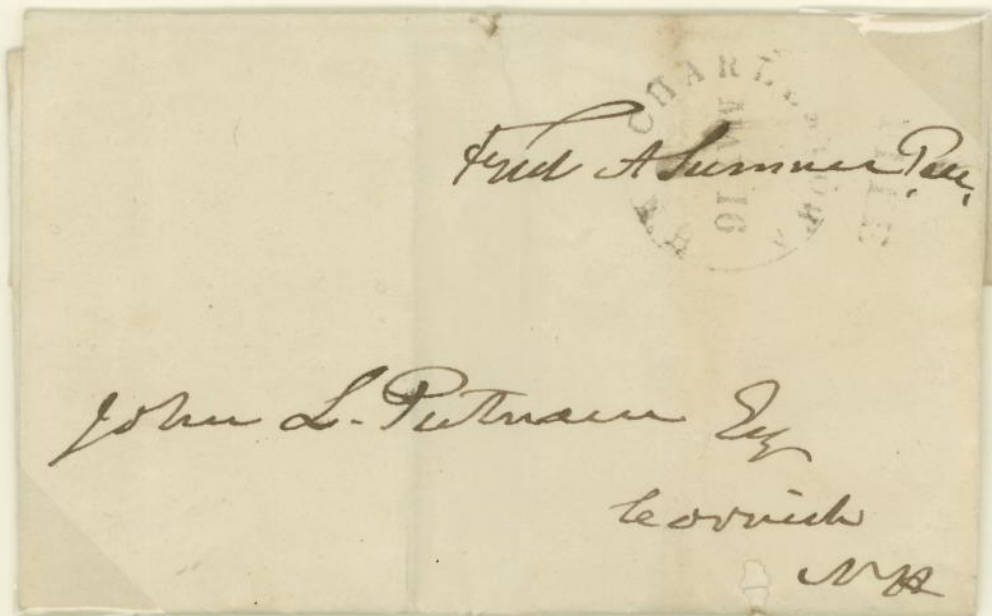 CHARLESTOWN
N.H.
MAY
16
FREE
Fred A Sumner P.M.
John L. Putnam Esq
Cornish
NH